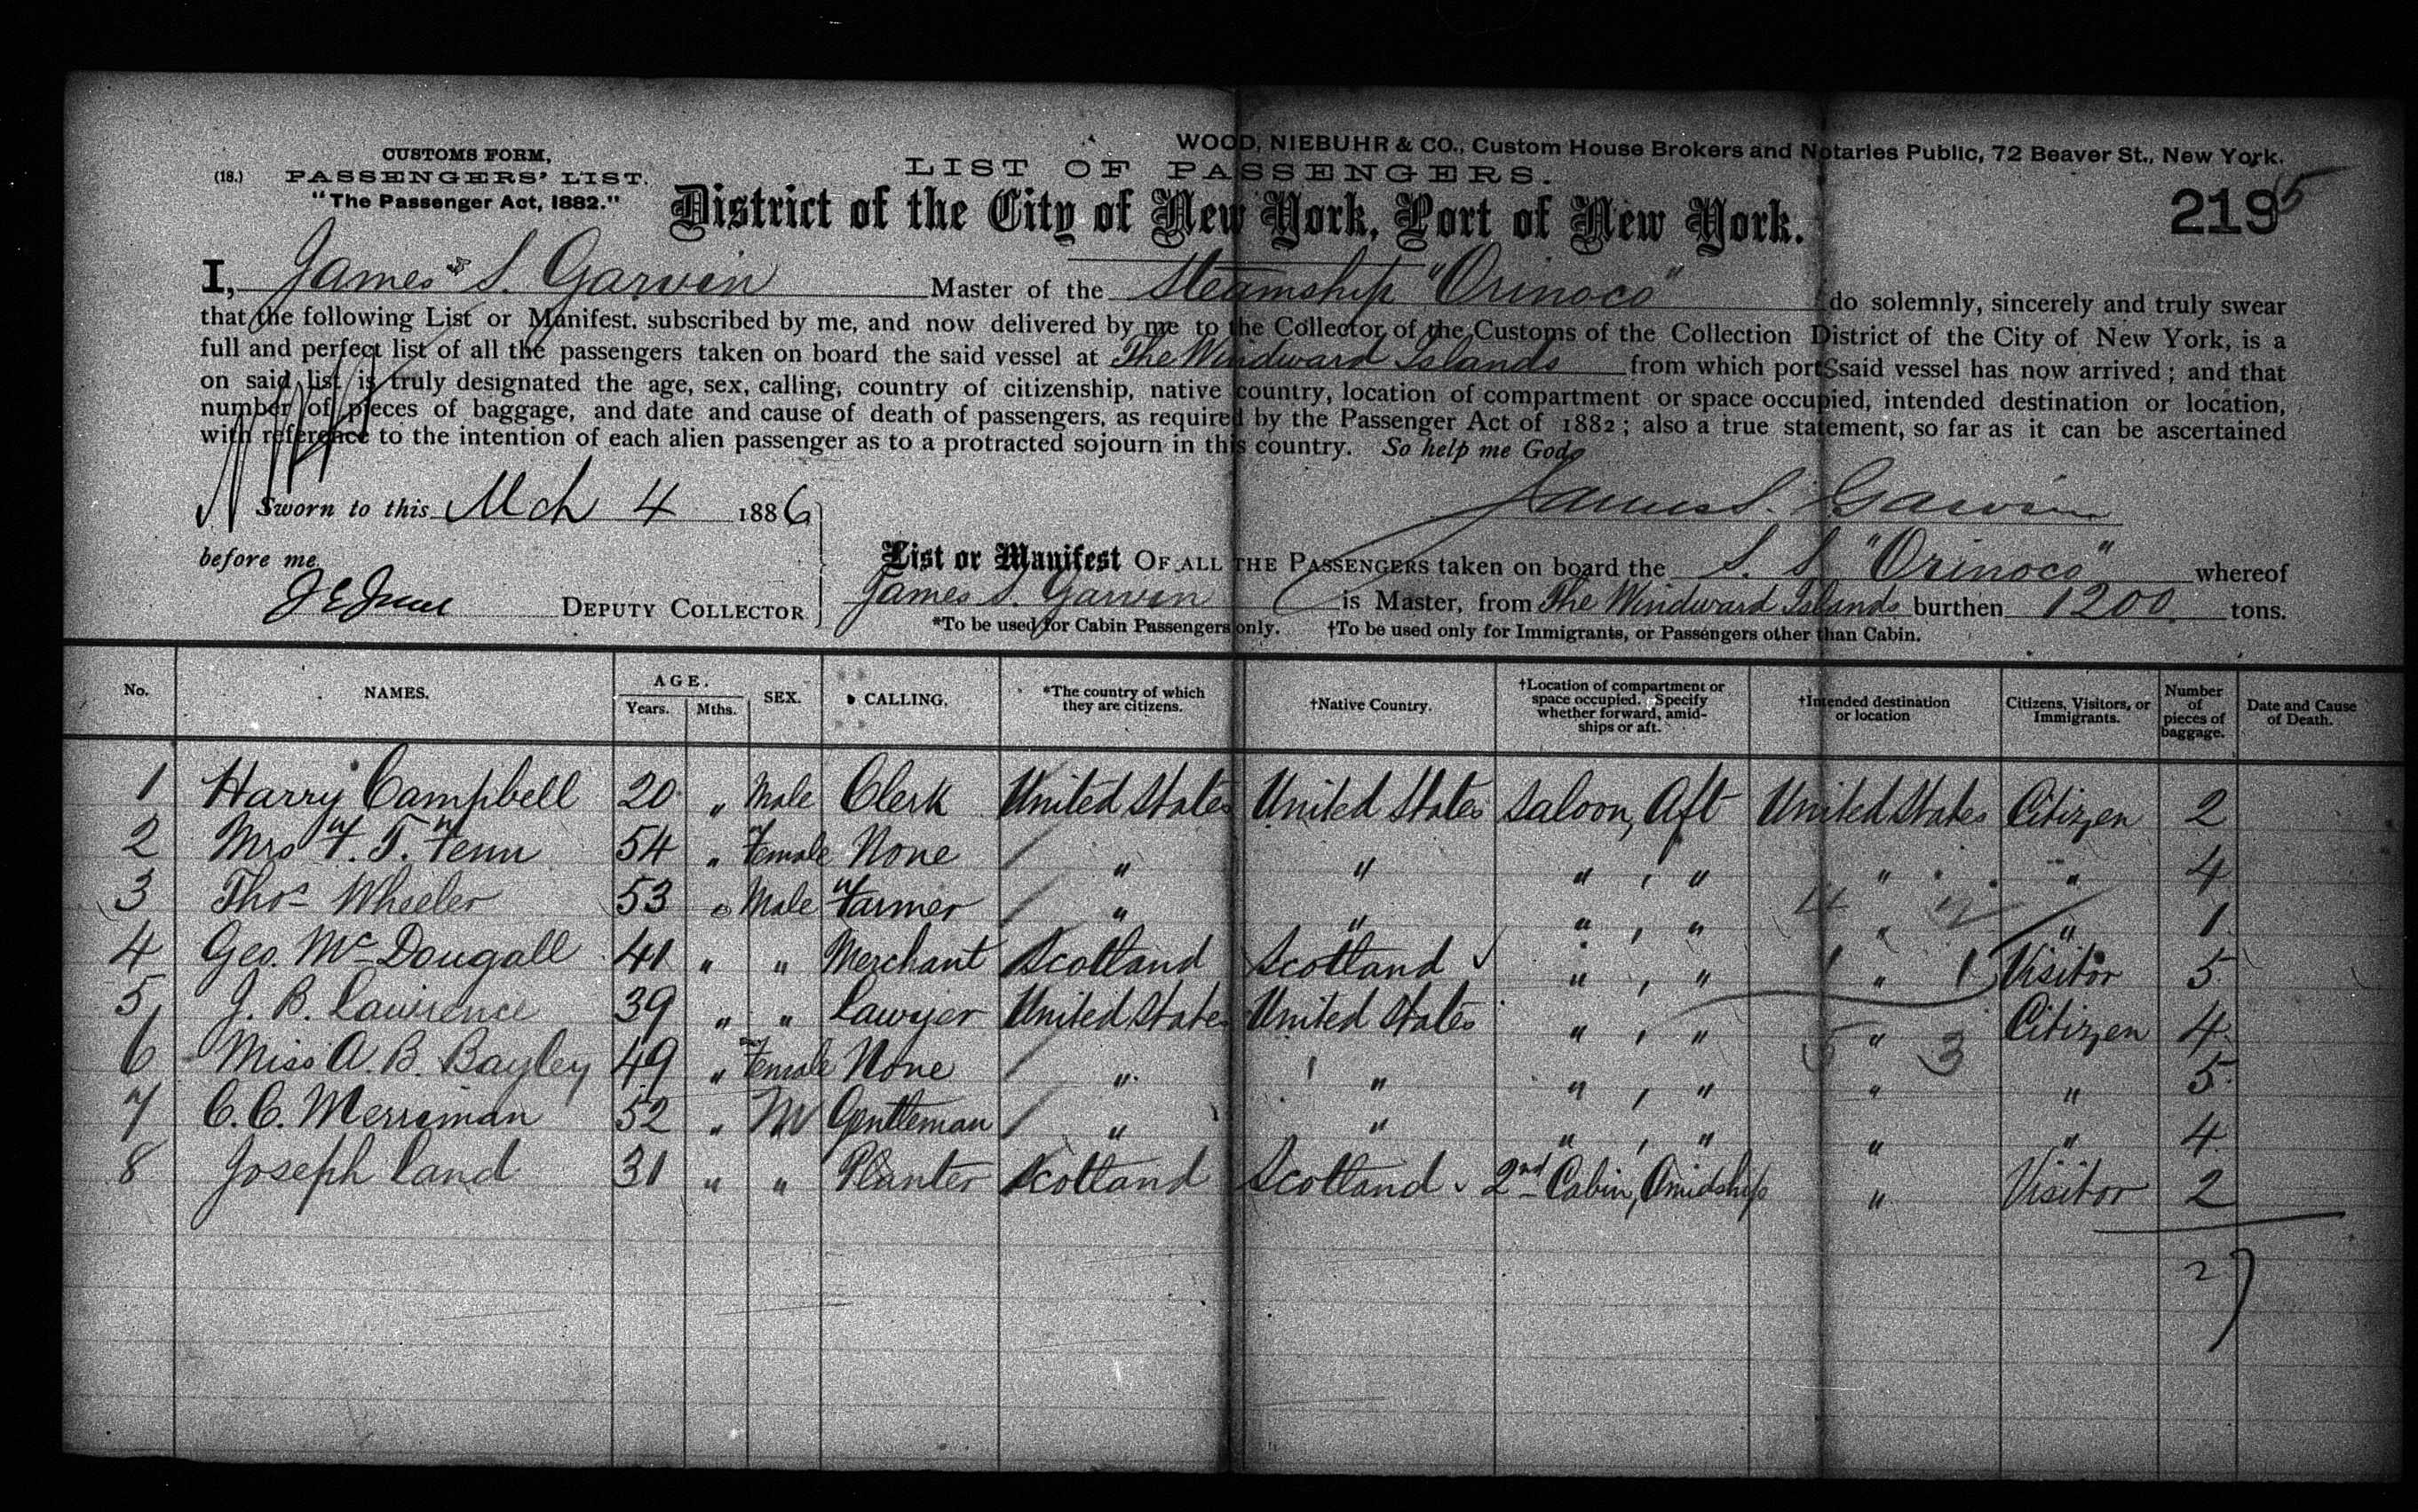 WOOD, NIEBUHR & CO., Custom House Brokers and Notaries Public, 72 Beaver St., New York.
CUSTOMS FORM,
(18.) PASSENGERS' LIST.
"The Passenger Act, 1882."
LIST OF PASSENGERS.
2195
District of the City of New York, Port of New York.
I, James S. Garvin Master of the Steamship "Orinoco" do solemnly, sincerely and truly swear
that the following List or Manifest. subscribed by me, and now delivered by me to the Collector of the Customs of the Collection District of the City of New York, is a
full and perfect list of all the passengers taken on board the said vessel at The Windward Islands from which ports said vessel has now arrived; and that
on said list is truly designated the age, sex, calling, country of citizenship, native country, location of compartment or space occupied, intended destination or location,
number of pieces of baggage, and date and cause of death of passengers, as required by the Passenger Act of 1882; also a true statement, so far as it can be ascertained
with reference to the intention of each alien passenger as to a protracted sojourn in this country. So help me God.
James S. Garvin
Sworn to this Mch 4 1886
before me
DEPUTY COLLECTOR
List or Manifest OF ALL THE PASSENGERS taken on board the S. S "Orinoco" whereof
James S. Garvin is Master, from The Windward Islands burthen 1200 tons.
*To be used for Cabin Passengers only. †To be used only for Immigrants, or Passengers other than Cabin.
No. NAMES. AGE. Years. Mths. SEX. CALLING. *The country of which they are citizens. †Native Country. †Location of compartment or space occupied. Specify whether forward, amidships or aft. †Intended destination or location Citizens, Visitors, or Immigrants. Number of pieces of baggage. Date and Cause of Death.
1 Harry Campbell 20 " Male Clerk United States United States Saloon, Aft United States Citizen 2
2 Mrs F. T. Fenn 54 " Female None " " " , " " " 4
3 Thos Wheeler 53 " Male Farmer " " " , " " " 1
4 Geo. Mc Dougall 41 " " Merchant Scotland Scotland " , " " Visitor 5
5 J. B. Lawrence 39 " " Lawyer United States United States " , " " Citizen 4
6 Miss A. B. Bayley 49 " Female None " " " , " " " 5
7 C. C. Merriman 52 " M Gentleman " " " , " " " 4
8 Joseph Land 31 " " Planter Scotland Scotland 2nd Cabin, Amidship " Visitor 2
27